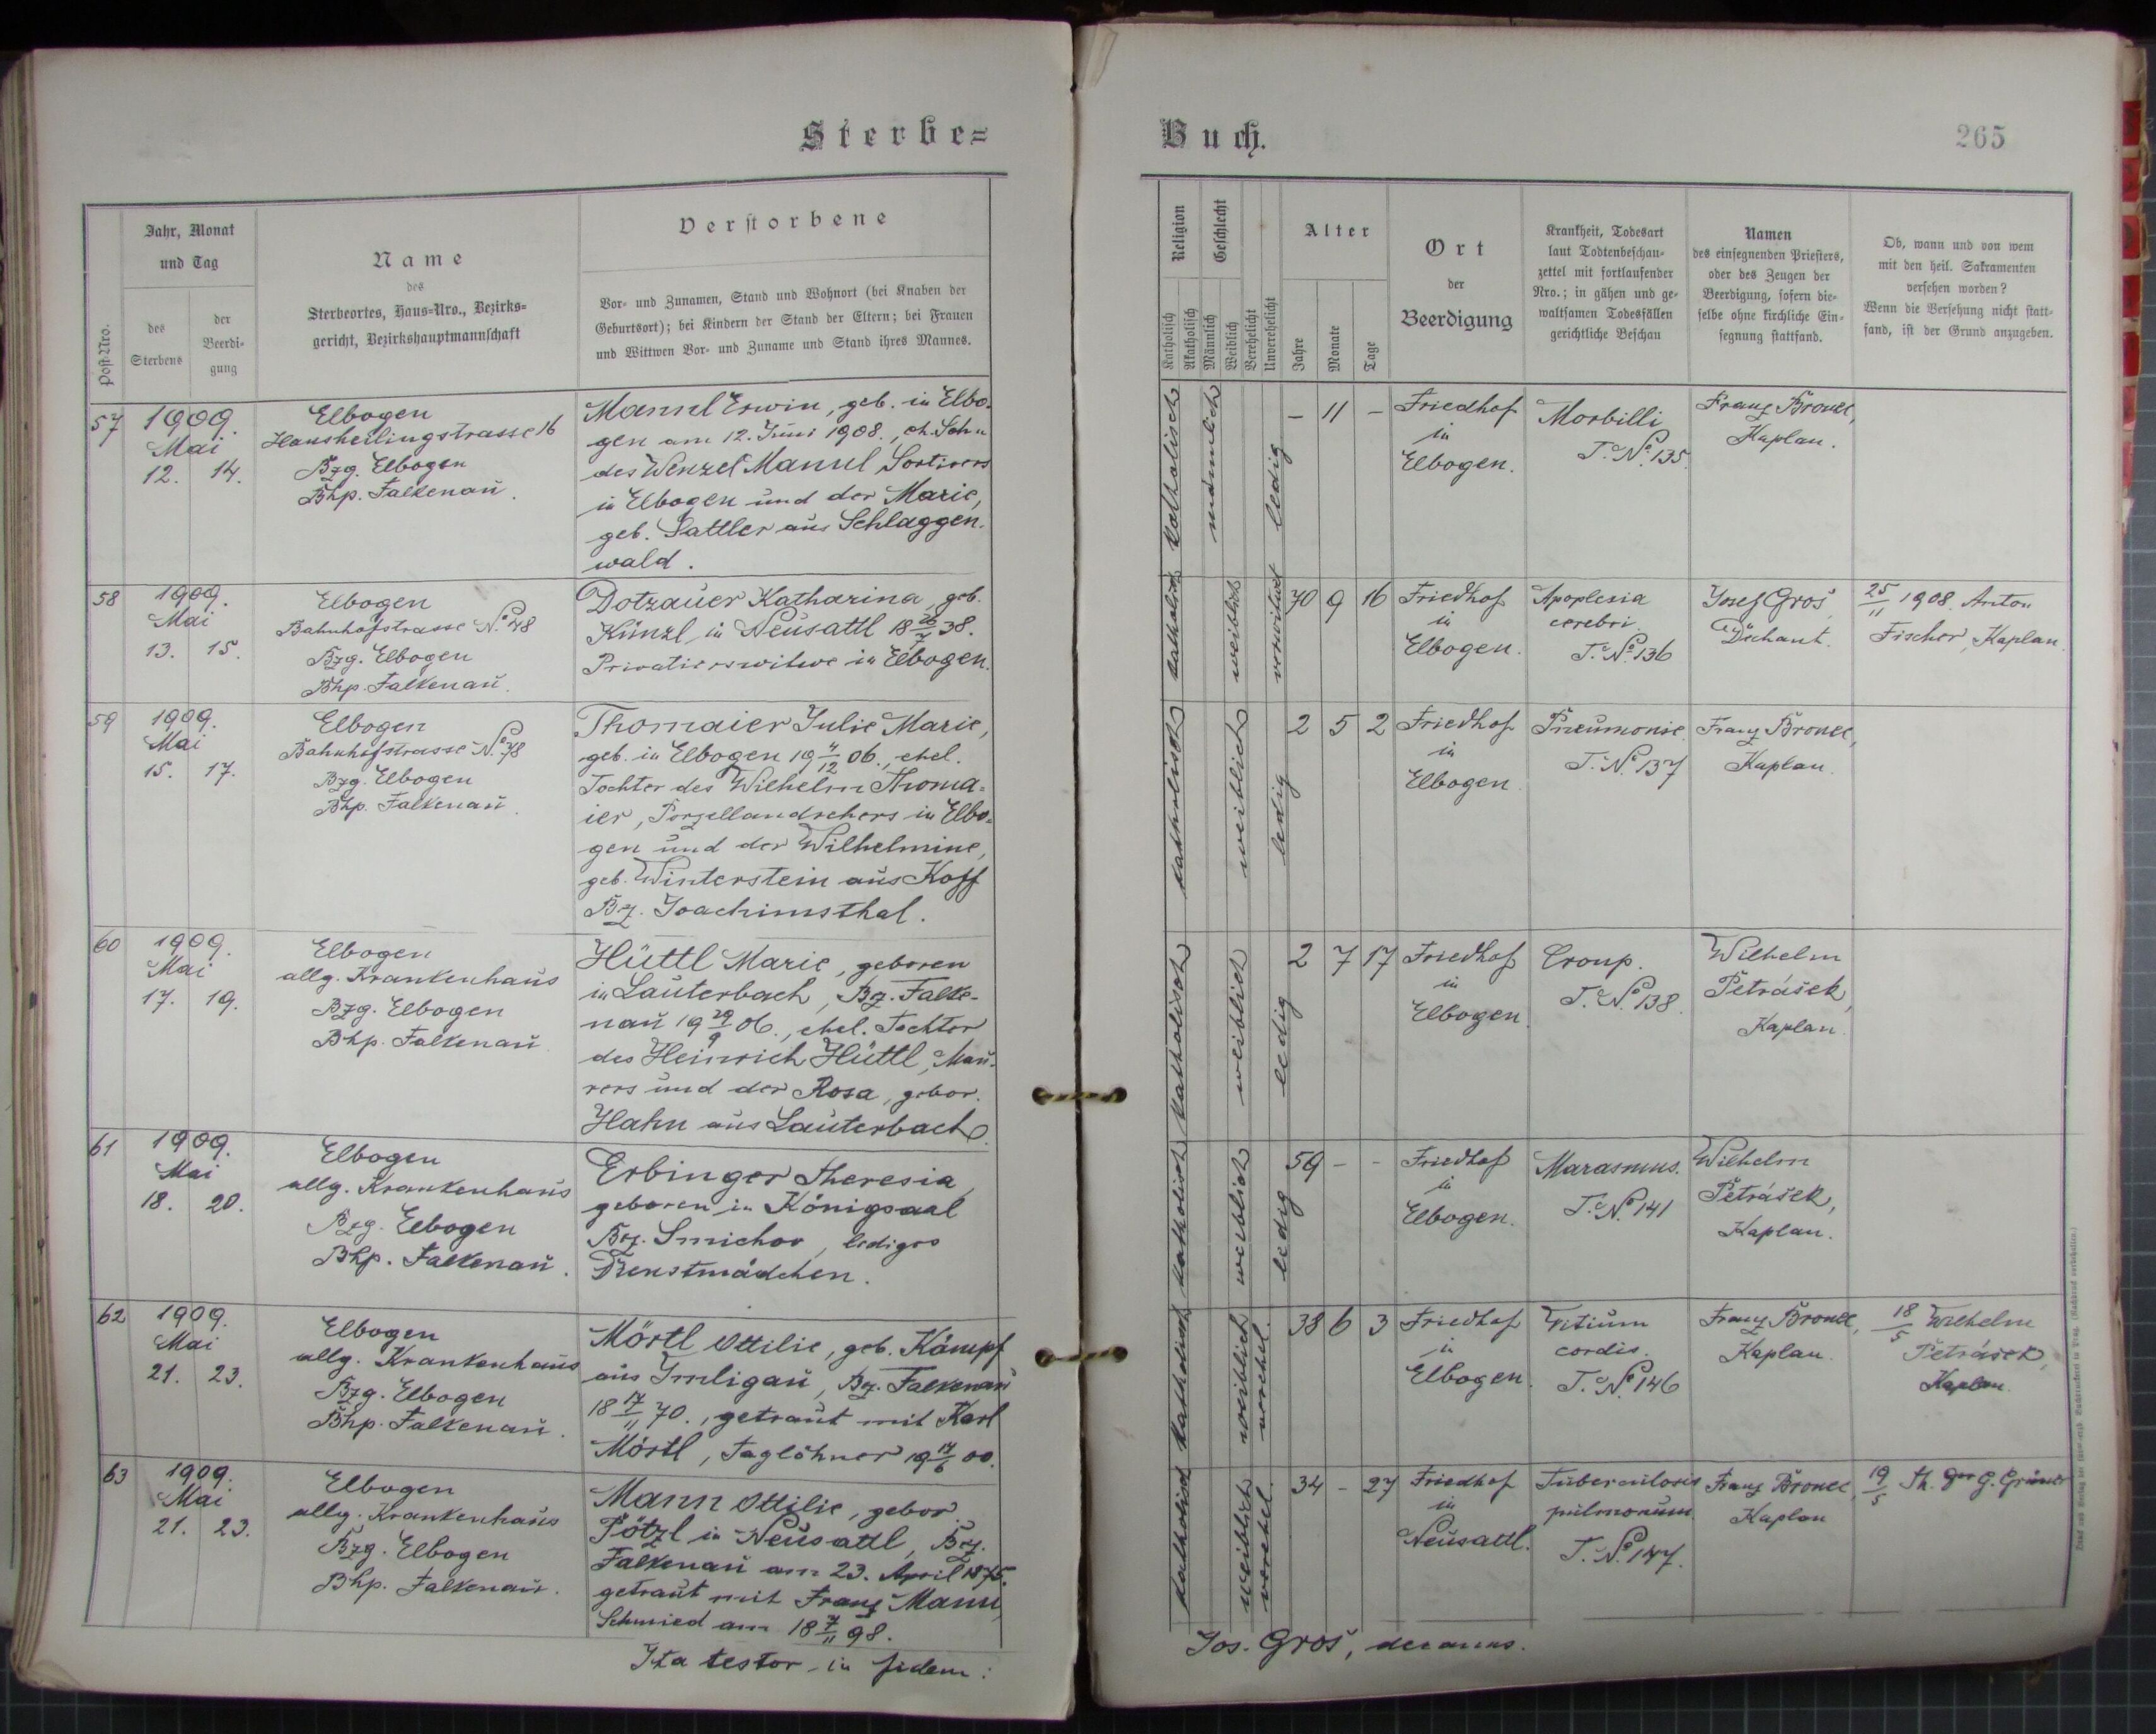 Sterbe=
Jahr, Monat
und Tag
Name
des
Sterbeortes, Haus=Nro., Bezirks=
gericht, Bezirkshauptmannschaft
Verstorbene
Post-Nro.
des
Sterbens
der
Beerdi-
gung
Vor- und Zunamen, Stand und Wohnort (bei Knaben der
Geburtsort); bei Kindern der Stand der Eltern; bei Frauen
und Wittwen Vor- und Zuname und Stand ihres Mannes.
57
1909.
Mai
12. 14.
Elbogen
Hansheilingstrasse 16
Bzg. Elbogen
Bhp. Falkenau.
Mannl Erwin, geb. in Elbo-
gen am 12. Juni 1908., eh. Sohn
des Wenzel Mannl, Sortirers
in Elbogen und der Marie,
geb. Sattler aus Schlaggen-
wald.
58
1909.
Mai
13. 15.
Elbogen
Bahnhofstrasse No. 48
Bzg. Elbogen
Bhp. Falkenau.
Dotzauer Katharina, geb.
Künzl, in Neusattl 18 26/7 38.
Privatierswitwe in Elbogen.
59
1909.
Mai
15. 17.
Elbogen
Bahnhofstrasse No. 78
Bzg. Elbogen
Bhp. Falkenau.
Thomaier Julie Marie,
geb. in Elbogen 19 4/12 06., ehel.
Tochter des Wilhelm Thoma=
ier, Porzellandrehers in Elbo=
gen und der Wilhelmine,
geb. Winterstein aus Koff
Bz. Joachimsthal.
60
1909.
Mai
17. 19.
Elbogen
allg. Krankenhaus
Bzg. Elbogen
Bhp. Falkenau
Hüttl Marie, geboren
in Lauterbach, Bz. Falke-
nau 19 29/9 06., ehel. Tochter
des Heinrich Hüttl, Mau-
rers und der Rosa, gebor.
Hahn aus Lauterbach.
61
1909.
Mai
18. 20.
Elbogen
allg. Krankenhaus
Bzg. Elbogen
Bhp. Falkenau.
Erbinger Theresia,
geboren in Königsaal
Bez. Smichov, lediges
Dienstmädchen.
62
1909.
Mai
21. 23.
Elbogen
allg. Krankenhaus
Bzg. Elbogen
Bhp. Falkenau.
Mörtl Ottilie, geb. Kämpf
aus Imligau, Bz. Falkenau
18 17/11 70., getraut mit Karl
Mörtl, Taglöhner 19 17/6 00.
63
1909.
Mai
21. 23.
Elbogen
allg. Krankenhaus
Bzg. Elbogen
Bhp. Falkenau.
Mann Ottilie, gebor.
Pötzl in Neusattl, Bez.
Falkenau am 23. April 1875.
getraut mit Franz Mann,
Schmied am 18 7/11 98.
Ita testor in fidem:
Buch.
265
Religion
Geschlecht
Katholisch
Akatholisch
Männlich
Weiblich
Verehelicht
Unverehelicht
Alter
Jahre
Monate
Tage
Ort
der
Beerdigung
Krankheit, Todesart
laut Todtenbeschau-
zettel mit fortlaufender
Nro.; in gähen und ge-
waltsamen Todesfällen
gerichtliche Beschau
Namen
des einsegnenden Priesters,
oder des Zeugen der
Beerdigung, sofern die-
selbe ohne kirchliche Ein-
segnung stattfand.
Ob, wann und von wem
mit den heil. Sakramenten
versehen worden?
Wenn die Versehung nicht statt-
fand, ist der Grund anzugeben.
katholisch
männlich
ledig
– 11 –
Friedhof
in
Elbogen.
Morbilli
T. No. 135.
Franz Bronec,
Kaplan.
katholisch
weiblich
verwitwet
70 9 16
Friedhof
in
Elbogen.
Apoplexia
cerebri.
T. No. 136
Josef Groš,
Dechant.
25/11 1908. Anton
Fischer, Kaplan.
katholisch
weiblich
ledig
2 5 2
Friedhof
in
Elbogen.
Pneumonie.
T. No. 137
Franz Bronec,
Kaplan.
katholisch
weiblich
ledig
2 7 17
Friedhof
in
Elbogen.
Croup.
T. No. 138.
Wilhelm
Petrášek,
Kaplan.
katholisch
weiblich
ledig
59 – –
Friedhof
in
Elbogen.
Marasmus.
T. No. 141
Wilhelm
Petrášek,
Kaplan.
katholisch
weiblich
verehel.
38 6 3
Friedhof
in
Elbogen.
Vitium
cordis.
T. No. 146
Franz Bronec,
Kaplan.
18/5 Wilhelm
Petrášek,
Kaplan.
katholisch
weiblich
verehel.
34 – 27
Friedhof
in
Neusattl.
Tuberculosis
pulmonum.
T. No. 147.
Franz Bronec,
Kaplan
19/5
Jos. Groš, decanus.